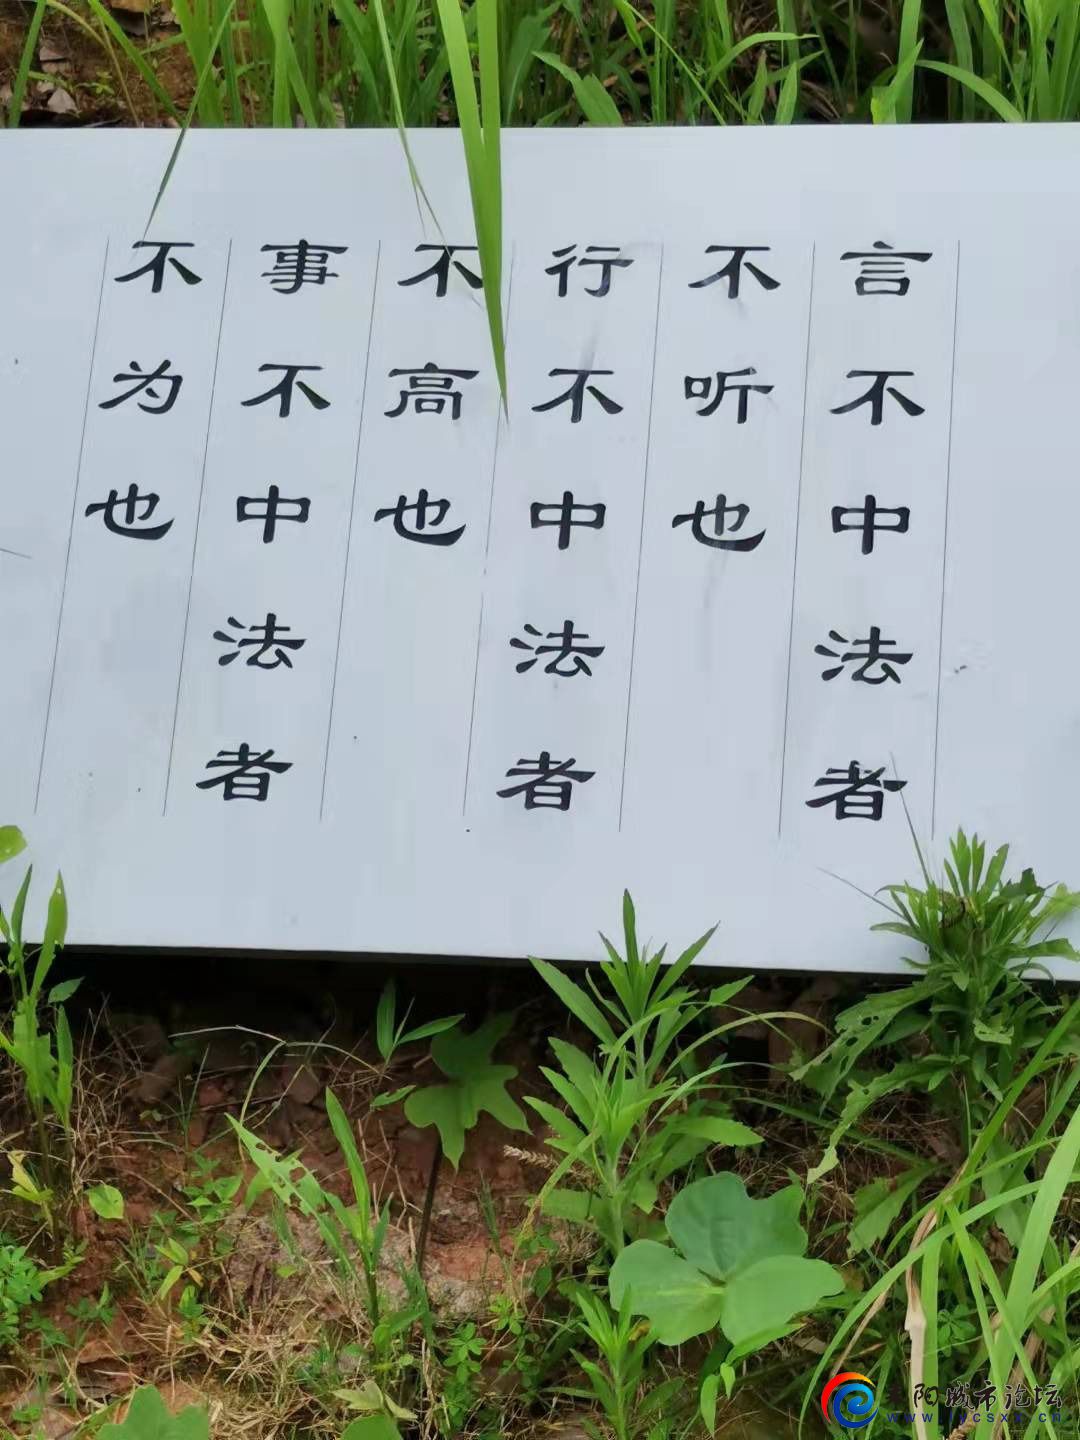 言不中法者
不听也
行不中法者
不高也
事不中法者
不为也
阳城市论坛